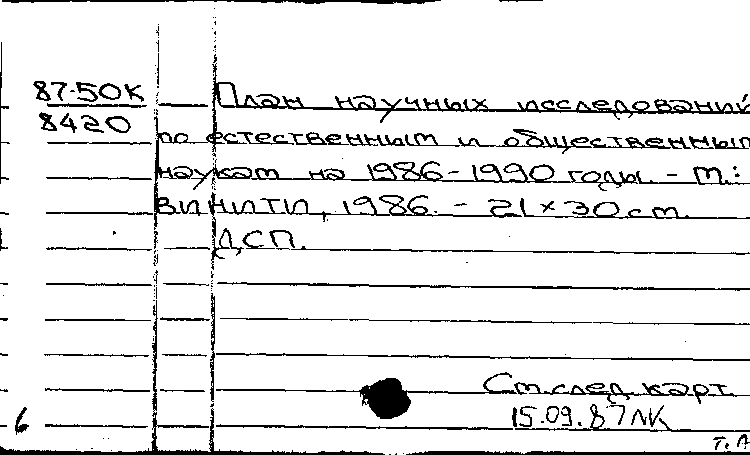 87-50К План научных исследований
8420 по естественным и общественным
наукам на 1986-1990 годы. - М.:
ВИНИТИ, 1986. - 21 × 30 см.
ДСП.
См. след. карт
15.09.87 ЛК
6
Т. А